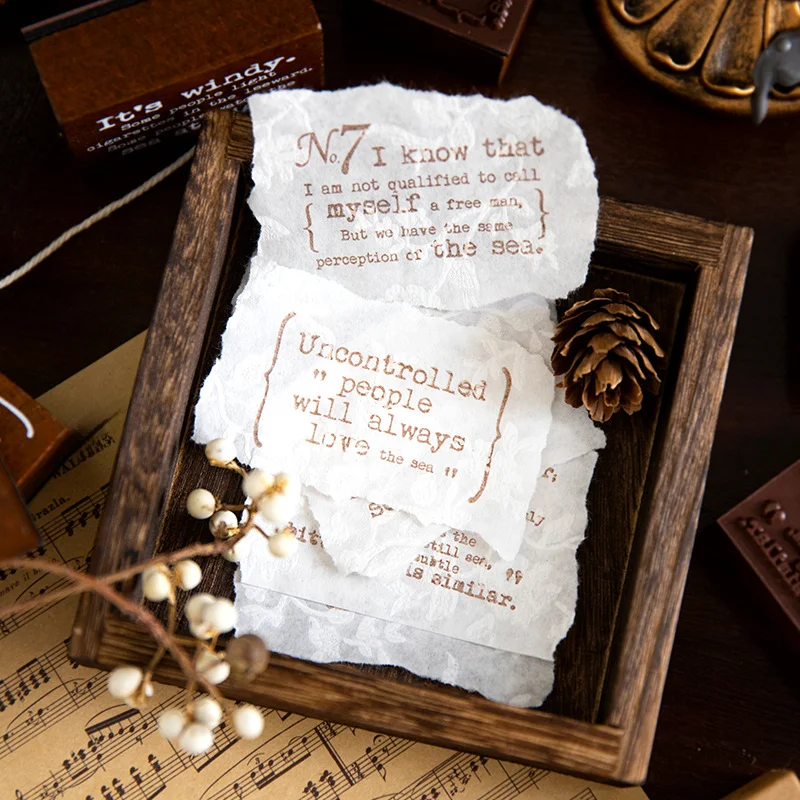 It's windy.
Some people light
cigarettes in the leeward.
Some people
No.7 I know that
I am not qualified to call
{ myself a free man, }
But we have the same
perception of the sea.
Uncontrolled
" people
will always
love the sea "
the
still sea, "
subtle
is similar.